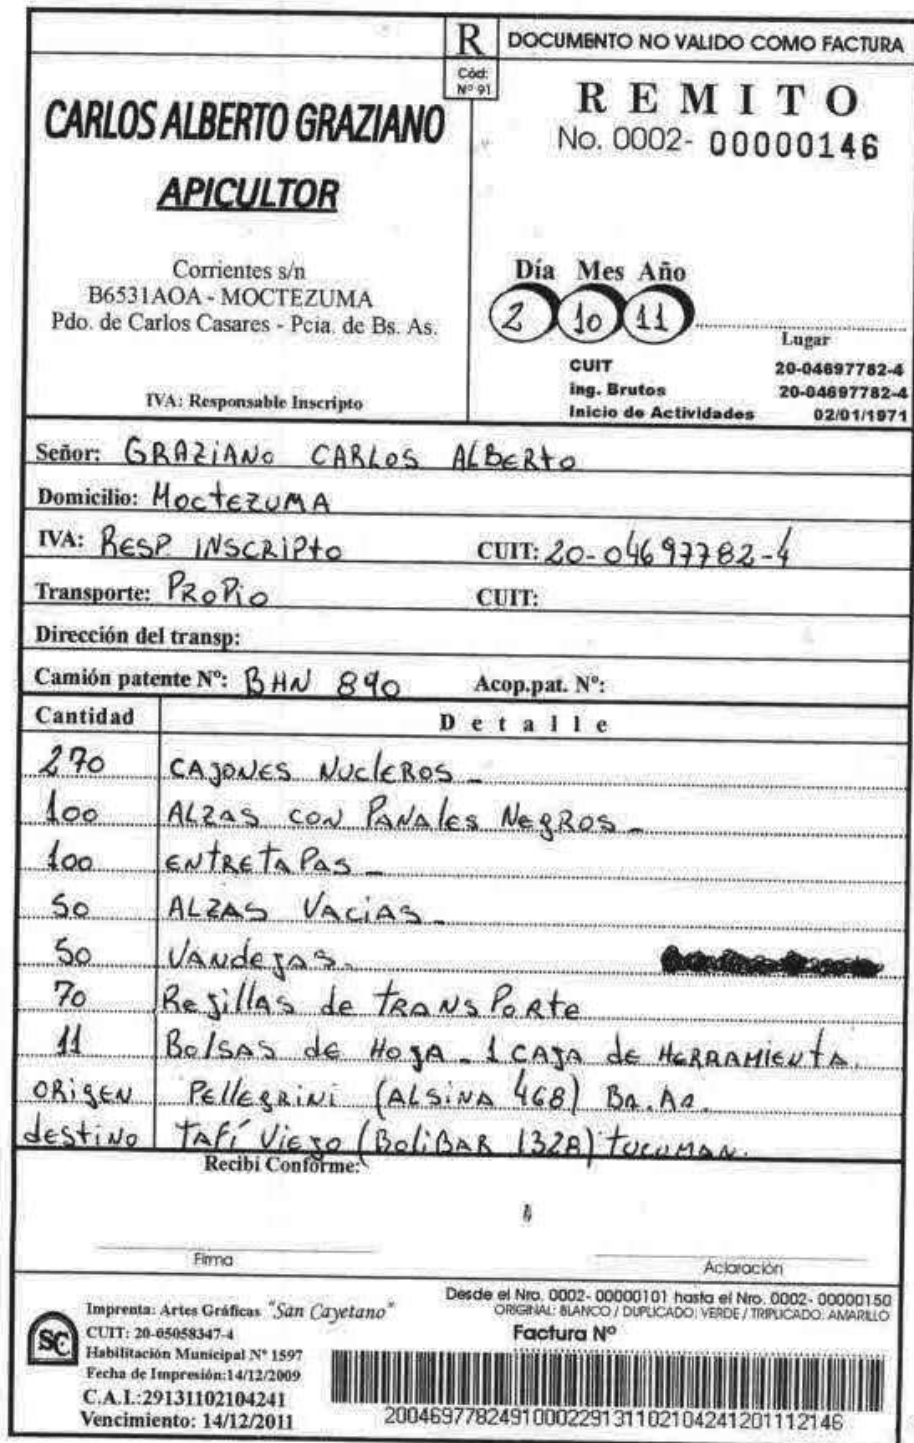 R DOCUMENTO NO VALIDO COMO FACTURA
Cód:
Nº 91
CARLOS ALBERTO GRAZIANO
APICULTOR
Corrientes s/n
B6531AOA - MOCTEZUMA
Pdo. de Carlos Casares - Pcia. de Bs. As.
IVA: Responsable Inscripto
REMITO
No. 0002- 00000146
Día Mes Año
2 10 11
Lugar
CUIT 20-04697782-4
Ing. Brutos 20-04697782-4
Inicio de Actividades 02/01/1971
Señor: GRAZIANO CARLOS ALBERTO
Domicilio: MOCTEZUMA
IVA: RESP INSCRIPTO CUIT: 20-04697782-4
Transporte: PROPIO CUIT:
Dirección del transp:
Camión patente Nº: BHN 890 Acop.pat. Nº:
Cantidad Detalle
270 CAJONES NUCLEROS -
100 ALZAS CON PANALES NEGROS -
100 ENTRETAPAS -
50 ALZAS VACIAS -
50 VANDEJAS.
70 REJILLAS DE TRANSPORTE
11 BOLSAS DE HOJA - 1 CAJA DE HERRAMIENTA.
ORIGEN PELLEGRINI (ALSINA 468) Bs. As.
destino TAFÍ VIEJO (BOLIBAR 1328) TUCUMAN.
Recibí Conforme:
Firma Aclaración
Imprenta: Artes Gráficas "San Cayetano"
CUIT: 20-05058347-4
Habilitación Municipal Nº 1597
Fecha de Impresión:14/12/2009
C.A.I.:29131102104241
Vencimiento: 14/12/2011
SC
Desde el Nro. 0002- 00000101 hasta el Nro. 0002- 00000150
ORIGINAL: BLANCO / DUPLICADO: VERDE / TRIPLICADO: AMARILLO
Factura Nº
200469778249100022913110210424120111214​6